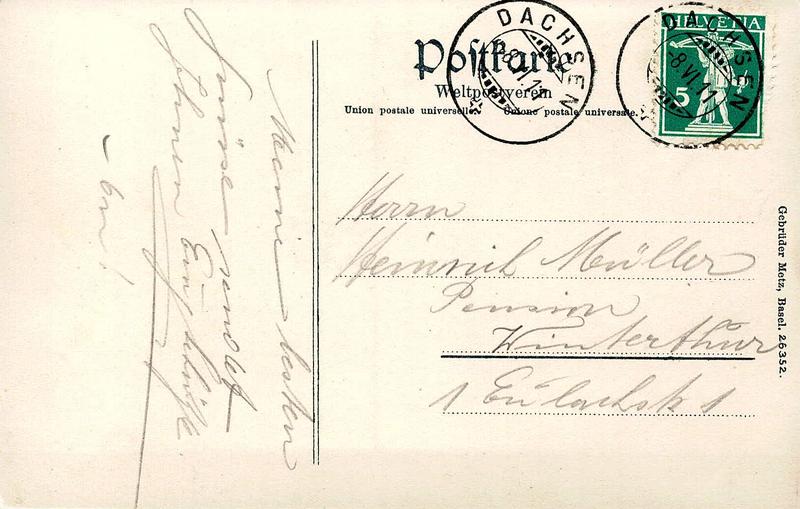 Postkarte
Weltpostverein
Union postale universelle. Unione postale universale.
DACHSEN
8.VI.11
DACHSEN
8.VI.11
HELVETIA
5
Herrn
Heinrich Müller
Pension
Winterthur
1 Eulachstr 1
Meine besten
Grüsse sendet
Ihnen
Gebrüder Metz, Basel. 26352.